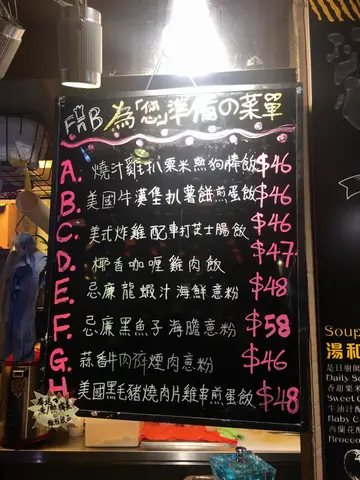 FAB 為「您」準備の菜單
A. 燒汁雞扒粟米熱狗棒飯 $46
B. 美國牛漢堡扒薯餅煎蛋飯 $46
C. 美式炸雞配車打芝士腸飯 $46
D. 椰香咖喱雞肉飯 $47
E. 忌廉龍蝦汁海鮮意粉 $48
F. 忌廉黑魚子海膽意粉 $58
G. 蒜香牛肉碎煙肉意粉 $46
H. 美國黑毛豬燒肉片雞串煎蛋飯 $48
Soup
湯和
是日廚師
Daily So
香甜粟米
Sweet C
Baby C
西蘭花
Brocco